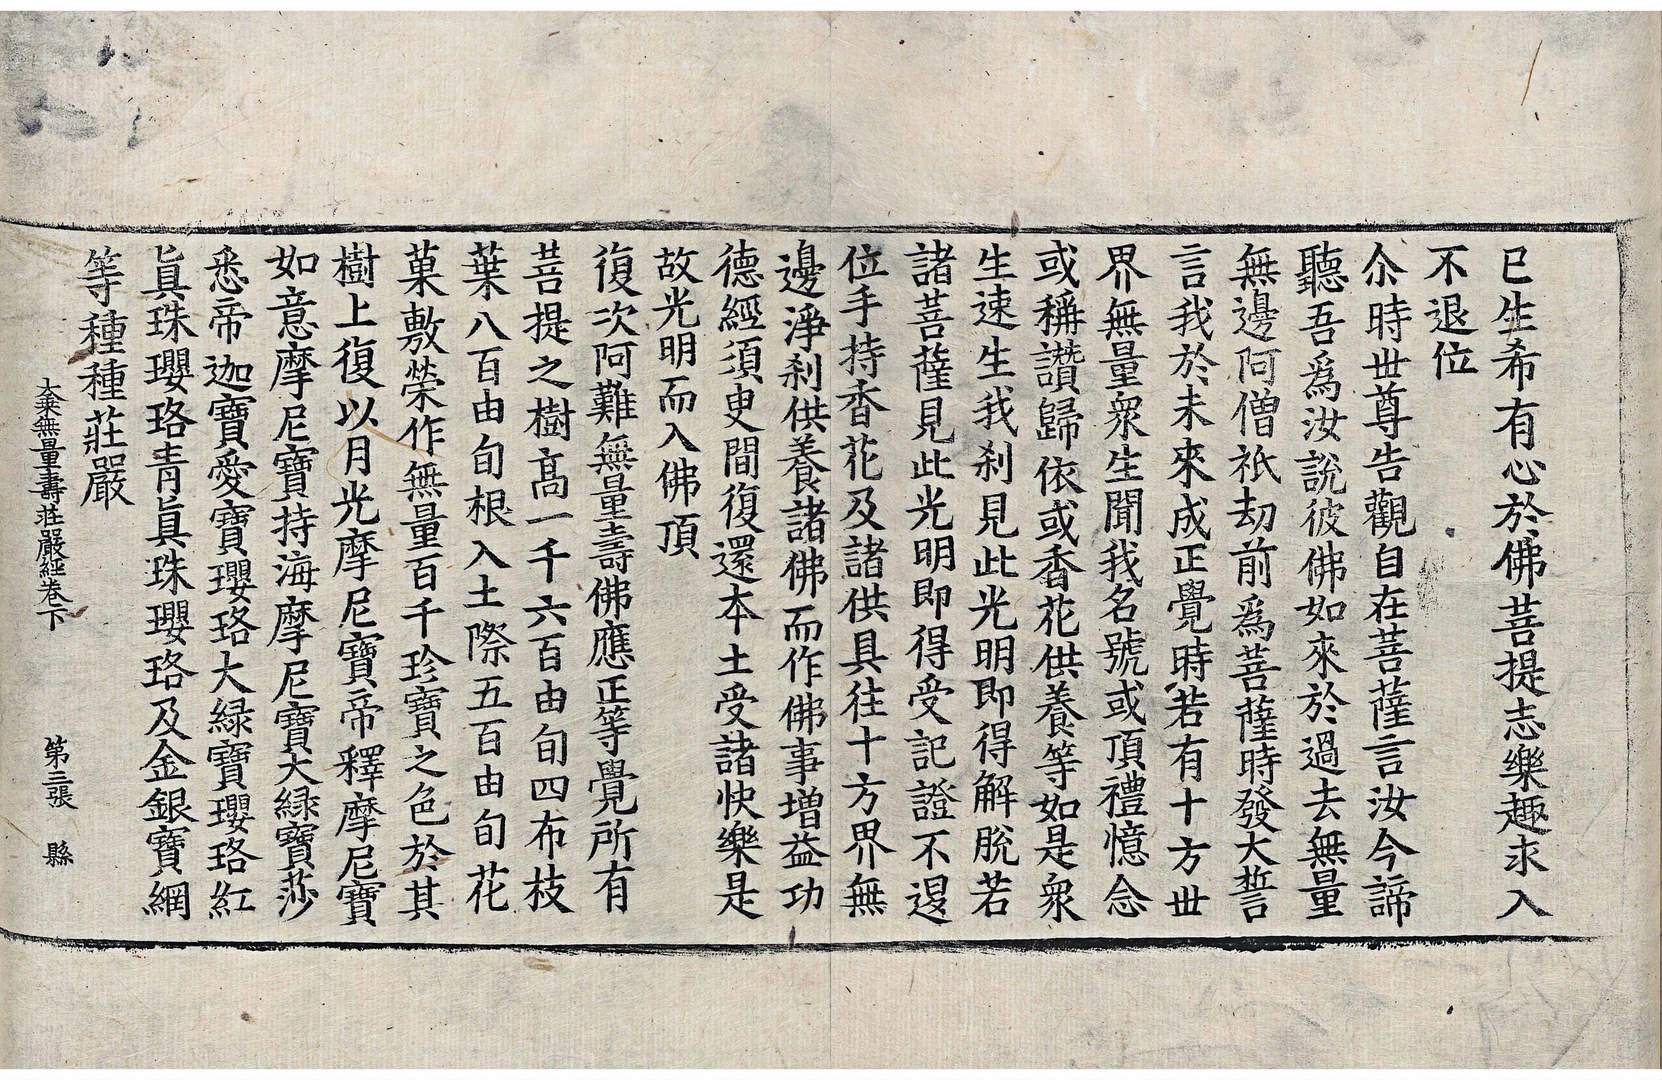 已生希有心於佛菩提志樂趣求入
不退位
尒時世尊告觀自在菩薩言汝今諦
聽吾爲汝說彼佛如來於過去無量
無邊阿僧祇劫前爲菩薩時發大誓
言我於未來成正覺時若有十方世
界無量衆生聞我名號或頂禮憶念
或稱讚歸依或香花供養等如是衆
生速生我刹見此光明即得解脫若
諸菩薩見此光明即得受記證不退
位手持香花及諸供具往十方界無
邊淨刹供養諸佛而作佛事增益功
德經須臾間復還本土受諸快樂是
故光明而入佛頂
復次阿難無量壽佛應正等覺所有
菩提之樹高一千六百由旬四布枝
葉八百由旬根入土際五百由旬花
菓敷榮作無量百千珍寶之色於其
樹上復以月光摩尼寶帝釋摩尼寶
如意摩尼寶持海摩尼寶大緑寶莎
悉帝迦寶愛寶瓔珞大緑寶瓔珞紅
眞珠瓔珞青眞珠瓔珞及金銀寶網
等種種莊嚴
大乘無量壽莊嚴經卷下 第三張 縣